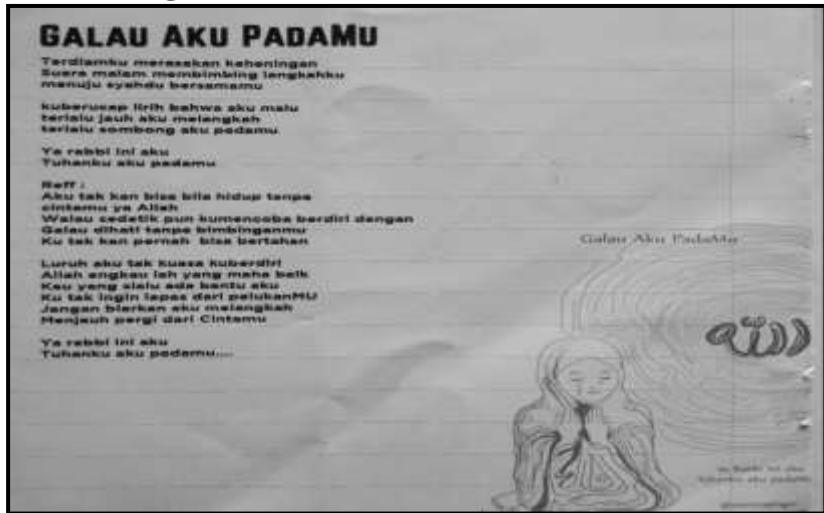 GALAU AKU PADAMU
Terdiamku merasakan keheningan
Suara malam membimbing langkahku
menuju syahdu bersamamu
kuberucap lirih bahwa aku malu
terlalu jauh aku melangkah
terlalu sombong aku padamu
Ya rabbi ini aku
Tuhanku aku padamu
Reff :
Aku tak kan bisa bila hidup tanpa
cintamu ya Allah
Walau sedetik pun kumencoba berdiri dengan
Galau dihati tanpa bimbinganmu
Ku tak kan pernah bisa bertahan
Luruh aku tak kuasa kuberdiri
Allah engkau lah yang maha baik
Kau yang slalu ada bantu aku
Ku tak ingin lepas dari pelukanMU
Jangan biarkan aku melangkah
Menjauh pergi dari Cintamu
Ya rabbi ini aku
Tuhanku aku padamu....
Galau Aku PadaMu
الله
ya Rabbi ini aku
tuhanku aku padamu